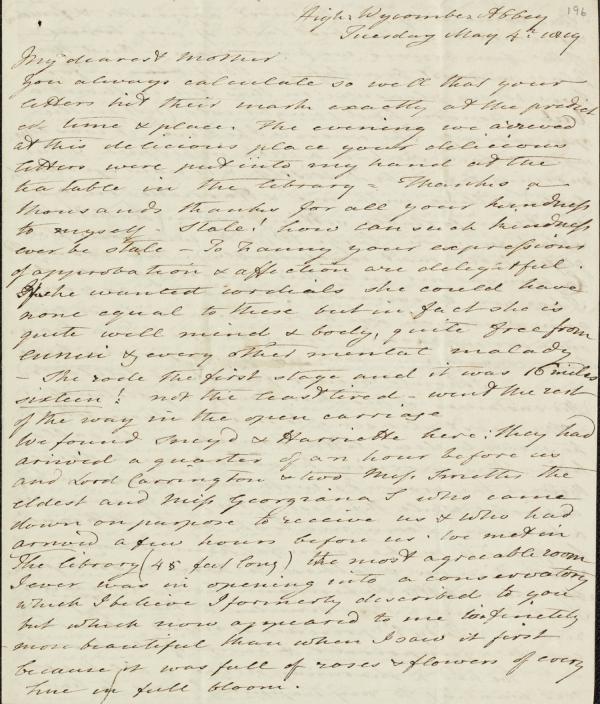 High Wycombe Abbey 196
Tuesday May 4th 1819
My dearest Mother
You always calculate so well that your
letters hit their mark exactly at the predict
ed time & place. The evening we arrived
at this delicious place your delicious
letters were put into my hand at the
tea table in the library = Thanks a
thousand thanks for all your kindness
to myself - Stale! how can such kindness
ever be stale - To Fanny your expressions
of approbation & affection are delightful.
If she wanted cordials she could have
none equal to these but in fact she is
quite well mind & body, quite free from
ennui & every other mental malady
- She rode the first stage and it was 16 miles
sixteen! not the least tired - went the rest
of the way in the open carriage
We found Sneyd & Harriette here: they had
arrived a quarter of an hour before us
and Lord Carrington & two Miss Smiths the
eldest and Miss Georgiana S who came
down on purpose to receive us & who had
arrived a few hours before us. We met in
The library (45 feet long) the most agreeable room
I ever was in opening into a conservatory
which I believe I formerly described to you
but which now appeared to me infinitely
more beautiful than when I saw it first
because it was full of roses & flowers of every
hue in full bloom.